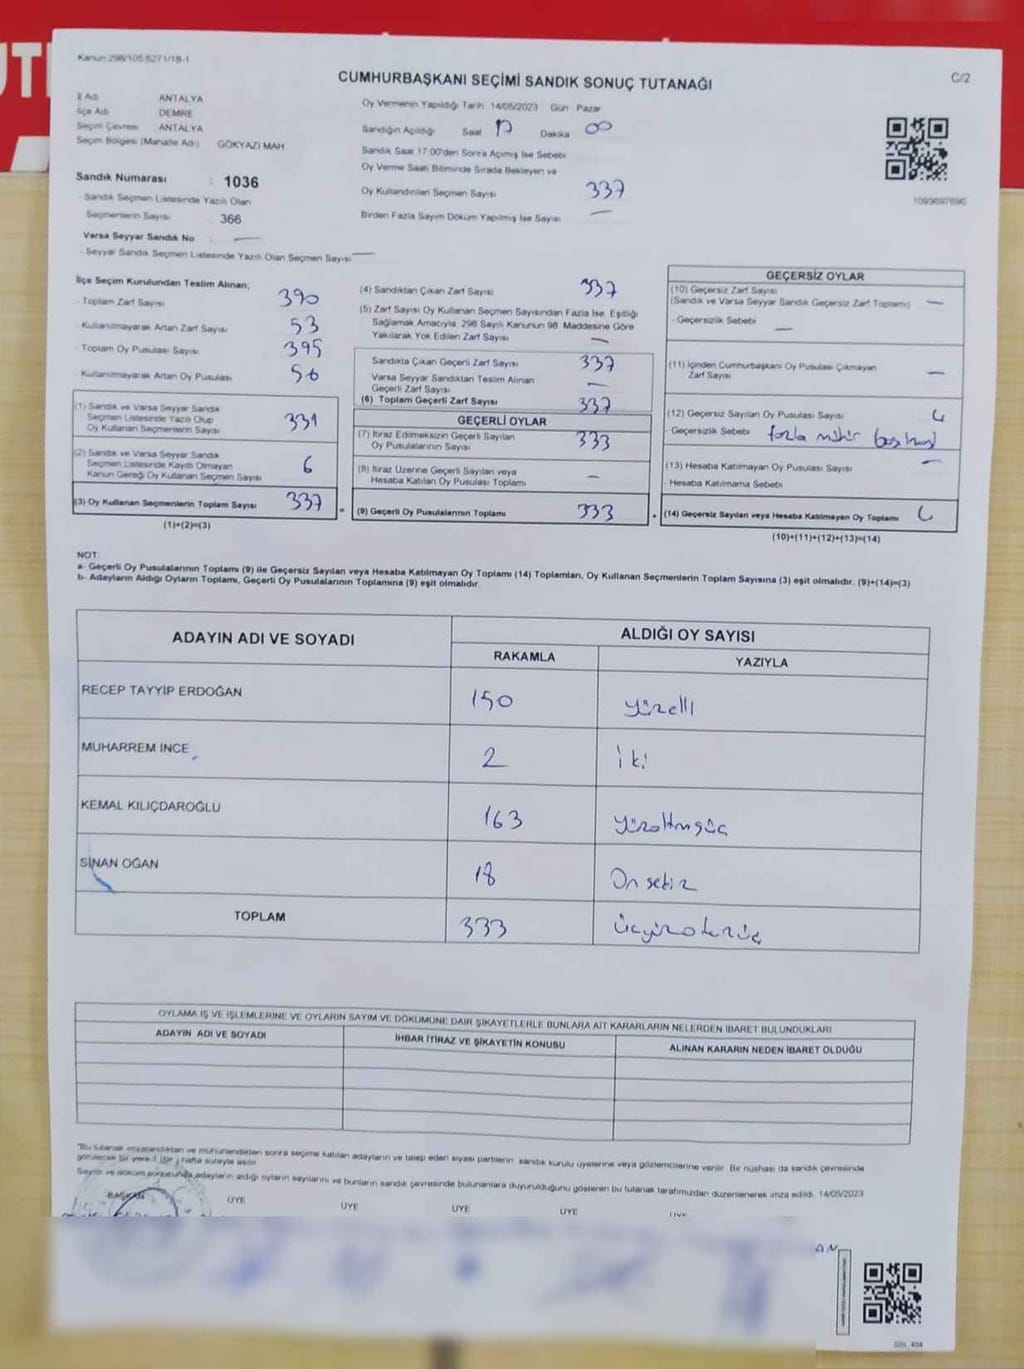 Kanun:298/105;6271/18-1
CUMHURBAŞKANI SEÇİMİ SANDIK SONUÇ TUTANAĞI
C/2
İl Adı ANTALYA
İlçe Adı DEMRE
Seçim Çevresi ANTALYA
Seçim Bölgesi (Mahalle Adı) GÖKYAZI MAH
Oy Vermenin Yapıldığı Tarih 14/05/2023 Gün Pazar
Sandığın Açıldığı Saat 17 Dakika 00
Sandık Saat 17:00'den Sonra Açımış İse Sebebi
Oy Verme Saati Bitiminde Sırada Bekleyen ve
Oy Kullandırılan Seçmen Sayısı 337
Birden Fazla Sayım Döküm Yapılmış İse Sayısı —
1093697690
Sandık Numarası : 1036
- Sandık Seçmen Listesinde Yazılı Olan
Seçmenlerin Sayısı : 366
Varsa Seyyar Sandık No : —
- Seyyar Sandık Seçmen Listesinde Yazılı Olan Seçmen Sayısı —
İlçe Seçim Kurulundan Teslim Alınan;
- Toplam Zarf Sayısı 390
- Kullanılmayarak Artan Zarf Sayısı 53
- Toplam Oy Pusulası Sayısı 395
- Kullanılmayarak Artan Oy Pusulası
(1) Sandık ve Varsa Seyyar Sandık
Seçmen Listesinde Yazılı Olup
Oy Kullanan Seçmenlerin Sayısı 331
(2) Sandık ve Varsa Seyyar Sandık
Seçmen Listesinde Kayıtlı Olmayan
Kanun Gereği Oy Kullanan Seçmen Sayısı 6
(3) Oy Kullanan Seçmenlerin Toplam Sayısı 337
(1)+(2)=(3)
(4) Sandıktan Çıkan Zarf Sayısı 337
(5) Zarf Sayısı Oy Kullanan Seçmen Sayısından Fazla İse, Eşitliği
Sağlamak Amacıyla, 298 Sayılı Kanunun 98. Maddesine Göre
Yakılarak Yok Edilen Zarf Sayısı —
Sandıkta Çıkan Geçerli Zarf Sayısı 337
Varsa Seyyar Sandıktan Teslim Alınan
Geçerli Zarf Sayısı —
(6) Toplam Geçerli Zarf Sayısı 337
GEÇERLİ OYLAR
(7) İtiraz Edilmeksizin Geçerli Sayılan
Oy Pusulasının Sayısı 333
(8) İtiraz Üzerine Geçerli Sayılan veya
Hesaba Katılan Oy Pusulası Toplamı —
(9) Geçerli Oy Pusulalarının Toplamı 333
GEÇERSİZ OYLAR
(10) Geçersiz Zarf Sayısı
(Sandık ve Varsa Seyyar Sandık Geçersiz Zarf Toplamı) —
- Geçersizlik Sebebi —
(11) İçinden Cumhurbaşkanı Oy Pusulası Çıkmayan
Zarf Sayısı —
(12) Geçersiz Sayılan Oy Pusulası Sayısı 4
- Geçersizlik Sebebi fazla mühür
(13) Hesaba Katılmayan Oy Pusulası Sayısı —
- Hesaba Katılmama Sebebi
(14) Geçersiz Sayılan veya Hesaba Katılmayan Oy Toplamı 4
(10)+(11)+(12)+(13)=(14)
NOT:
a- Geçerli Oy Pusulalarının Toplamı (9) ile Geçersiz Sayılan veya Hesaba Katılmayan Oy Toplamı (14) Toplamları, Oy Kullanan Seçmenlerin Toplam Sayısına (3) eşit olmalıdır. (9)+(14)=(3)
b- Adayların Aldığı Oyların Toplamı, Geçerli Oy Pusulalarının Toplamına (9) eşit olmalıdır.
ADAYIN ADI VE SOYADI ALDIĞI OY SAYISI
RAKAMLA YAZIYLA
RECEP TAYYİP ERDOĞAN 150 yüzelli
MUHARREM İNCE 2 iki
KEMAL KILIÇDAROĞLU 163 yüzaltmışüç
SİNAN OĞAN 18 Onsekiz
TOPLAM 333 üçyüzotuzüç
OYLAMA İŞ VE İŞLEMLERİNE VE OYLARIN SAYIM VE DÖKÜMÜNE DAİR ŞİKAYETLERLE BUNLARA AİT KARARLARIN NELERDEN İBARET BULUNDUKLARI
ADAYIN ADI VE SOYADI İHBAR İTİRAZ VE ŞİKAYETİN KONUSU ALINAN KARARIN NEDEN İBARET OLDUĞU
"Bu tutanak imzalandıktan ve mühürlendikten sonra seçime katılan adayların ve talep eden siyasi partilerin sandık kurulu üyelerine veya gözlemcilerine verilir. Bir nüshası da sandık çevresinde
görülecek bir yere 1 (bir) hafta süreyle asılır
Sayım ve döküm sonucunda adayların aldığı oyların sayılarını ve bunların sandık çevresinde bulunanlara duyurulduğunu gösteren bu tutanak tarafımızdan düzenlenerek imza edildi. 14/05/2023
BAŞKAN ÜYE ÜYE ÜYE ÜYE ÜYE